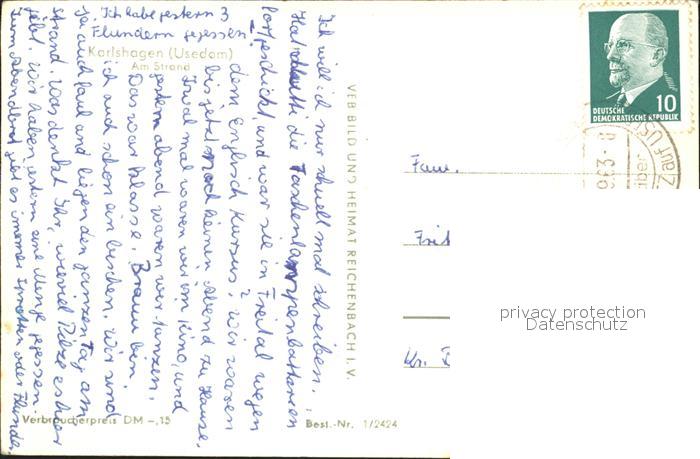 Ich will ich nur schnell mal schreiben.
Hat Mutti die Taschenlampenbatterien
geschickt und war sie in Freital wegen
dem Englisch Kursus? Wir waren
bis jetzt noch keinen Abend zu Hause.
Zwei mal waren wir im Kino, und
gestern abend waren wir tanzen.
Das war Klasse. Braun bin
ich auch schon ein bischen. Wir sind
ja auch faul und liegen den ganzen Tag am
Strand. Was denkt Ihr, wieviel Pilze es hier
gibt. Wir haben gestern eine Menge gegessen.
Zum Abendbrot gibt es immer Sprotten oder Flunder.
Ich habe gestern 3
Flundern gegessen!
Karlshagen (Usedom)
Am Strand
Verbraucherpreis DM -,15
Best.-Nr. 1/2424
VEB BILD UND HEIMAT REICHENBACH I. V.
10
DEUTSCHE
DEMOKRATISCHE REPUBLIK
auf USE
Fam.
Freit
Kr. D
privacy protection
Datenschutz